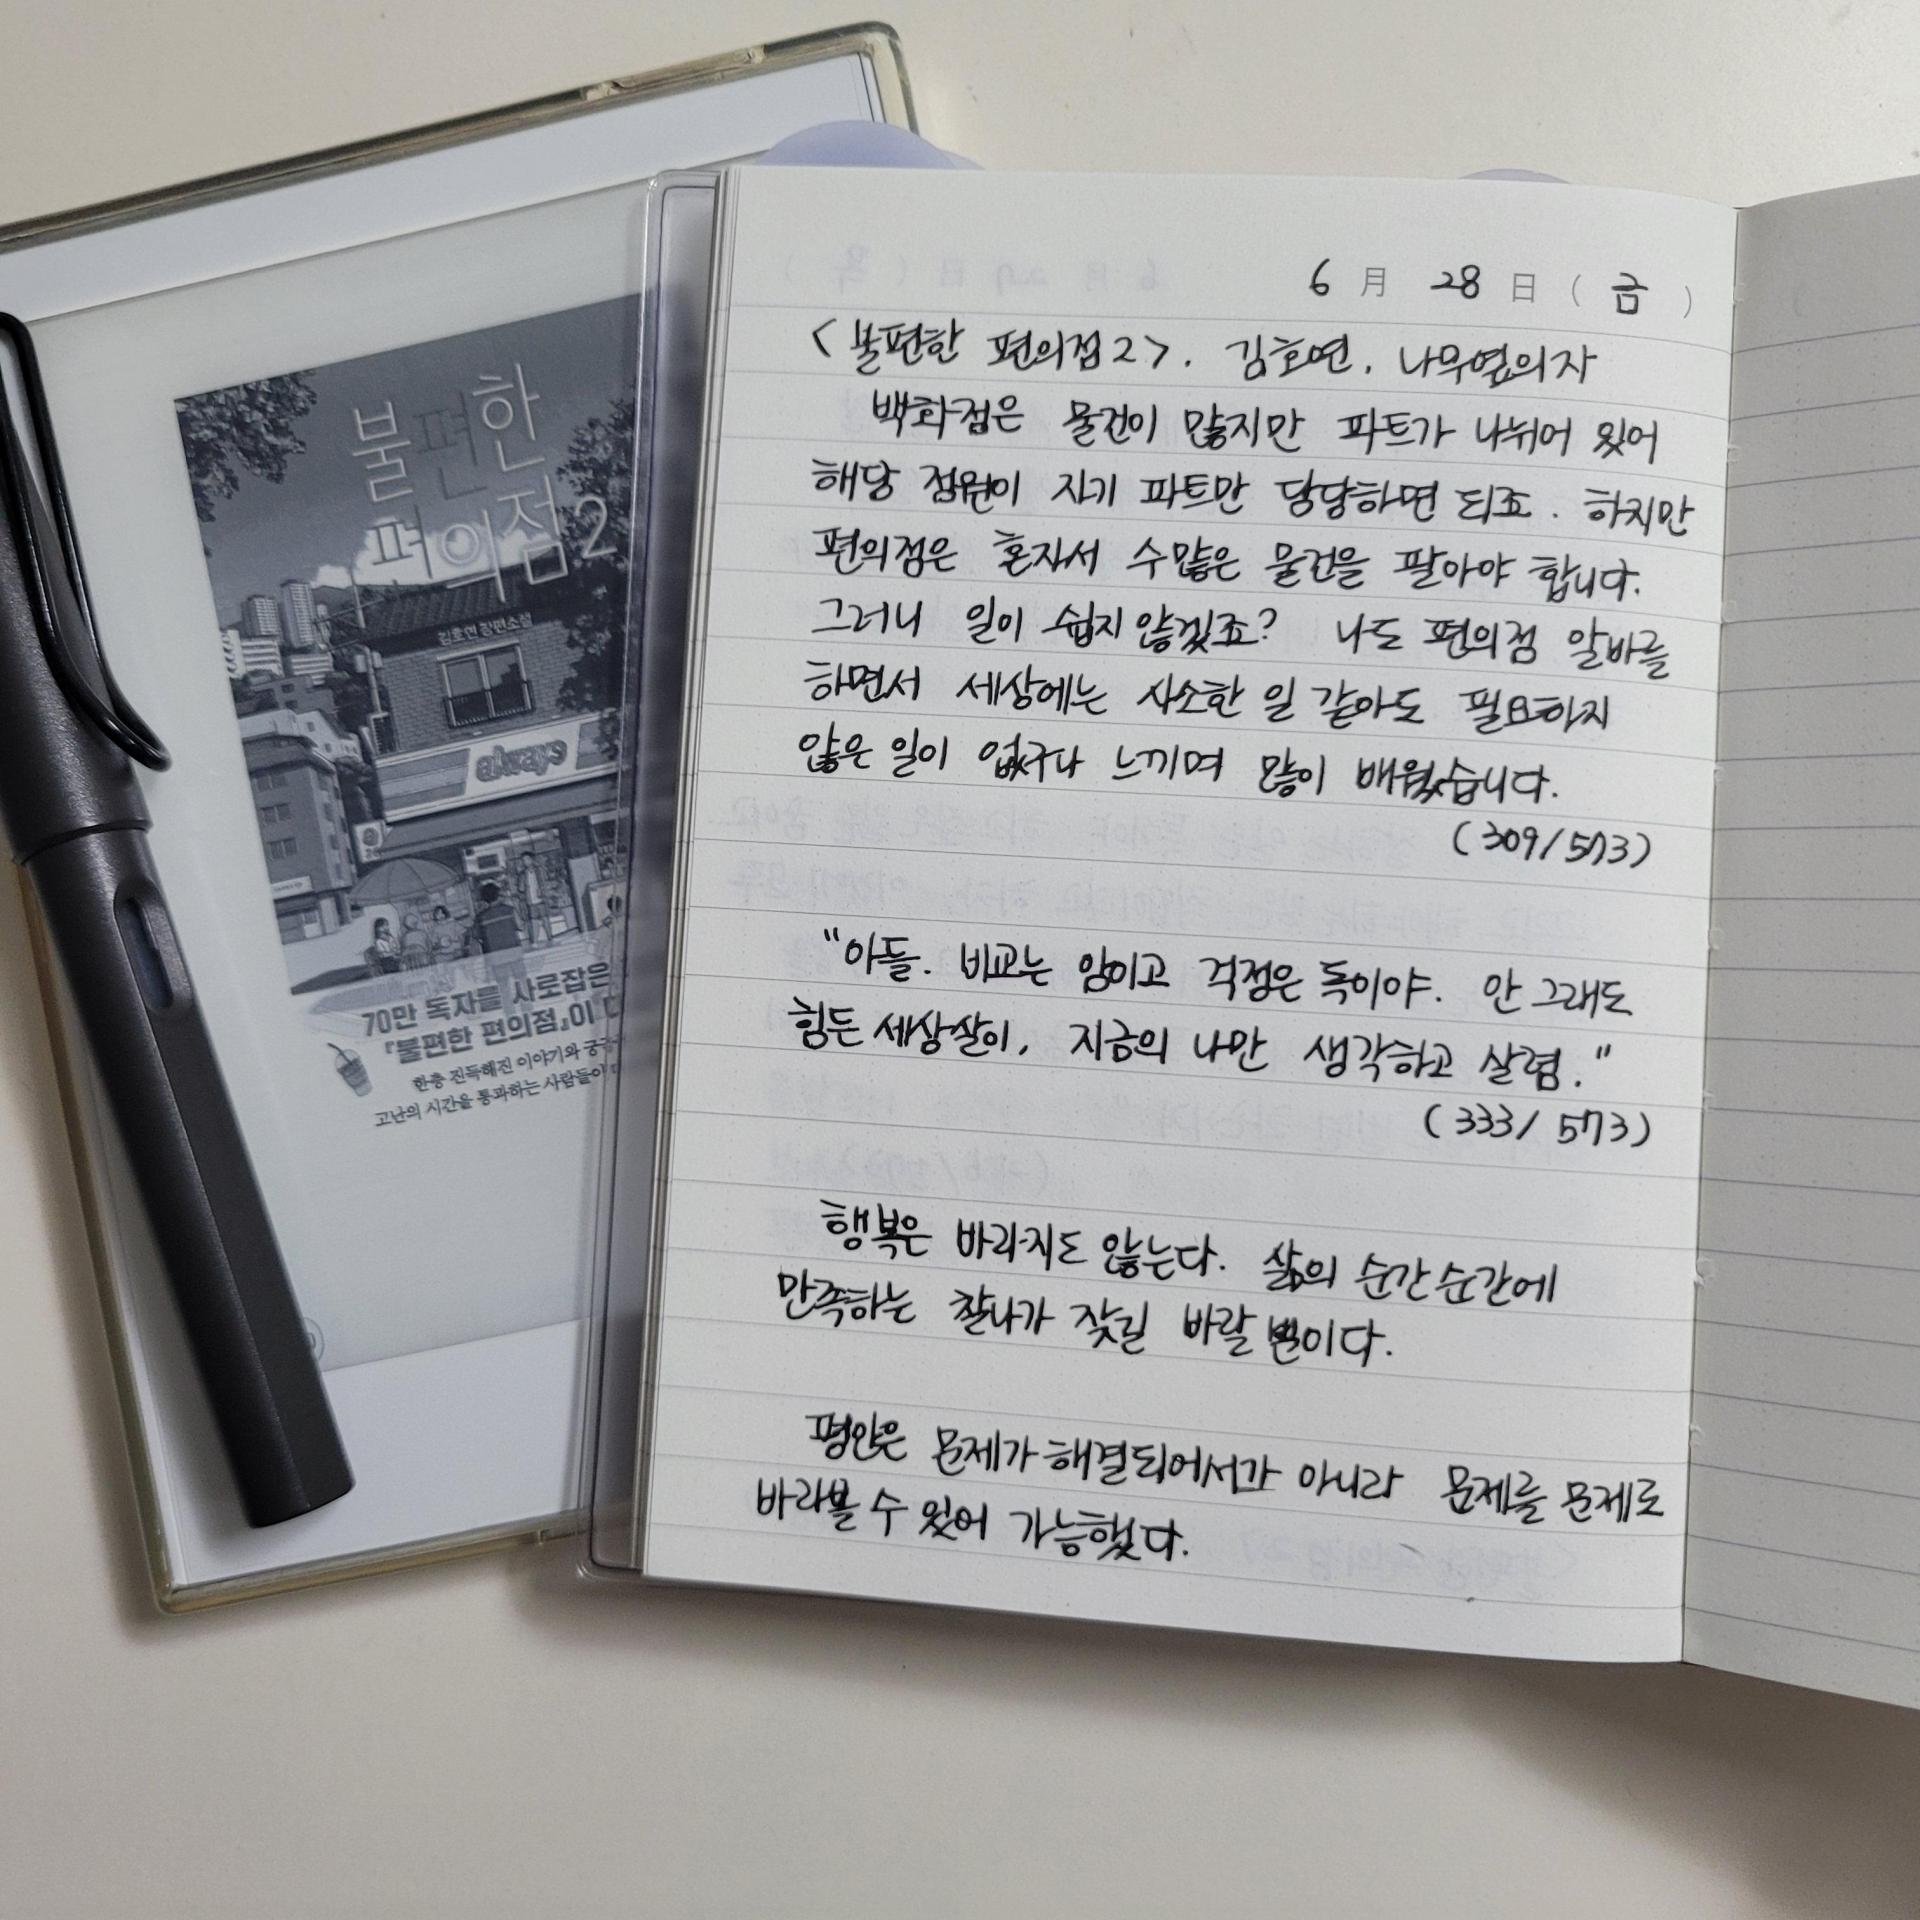 불편한
편의점2
김호연 장편소설
always
70만 독자를 사로잡은
『불편한 편의점』이
한층 진득해진 이야기와
고난의 시간을 통과하는 사람들이
6月 28日 (금)
<불편한 편의점2>. 김호연. 나무옆의자
백화점은 물건이 많지만 파트가 나뉘어 있어
해당 점원이 자기 파트만 담당하면 되죠. 하지만
편의점은 혼자서 수많은 물건을 팔아야 합니다.
그러니 일이 쉽지 않겠죠? 나도 편의점 알바를
하면서 세상에는 사소한 일 같아도 필요하지
않은 일이 없구나 느끼며 많이 배웠습니다.
(309/573)
"아들. 비교는 암이고 걱정은 독이야. 안 그래도
힘든 세상살이, 지금의 나만 생각하고 살렴."
(333/573)
행복은 바라지도 않는다. 삶의 순간순간에
만족하는 찰나가 잦길 바랄 뿐이다.
평안은 문제가 해결되어서가 아니라 문제를 문제로
바라볼 수 있어 가능했다.